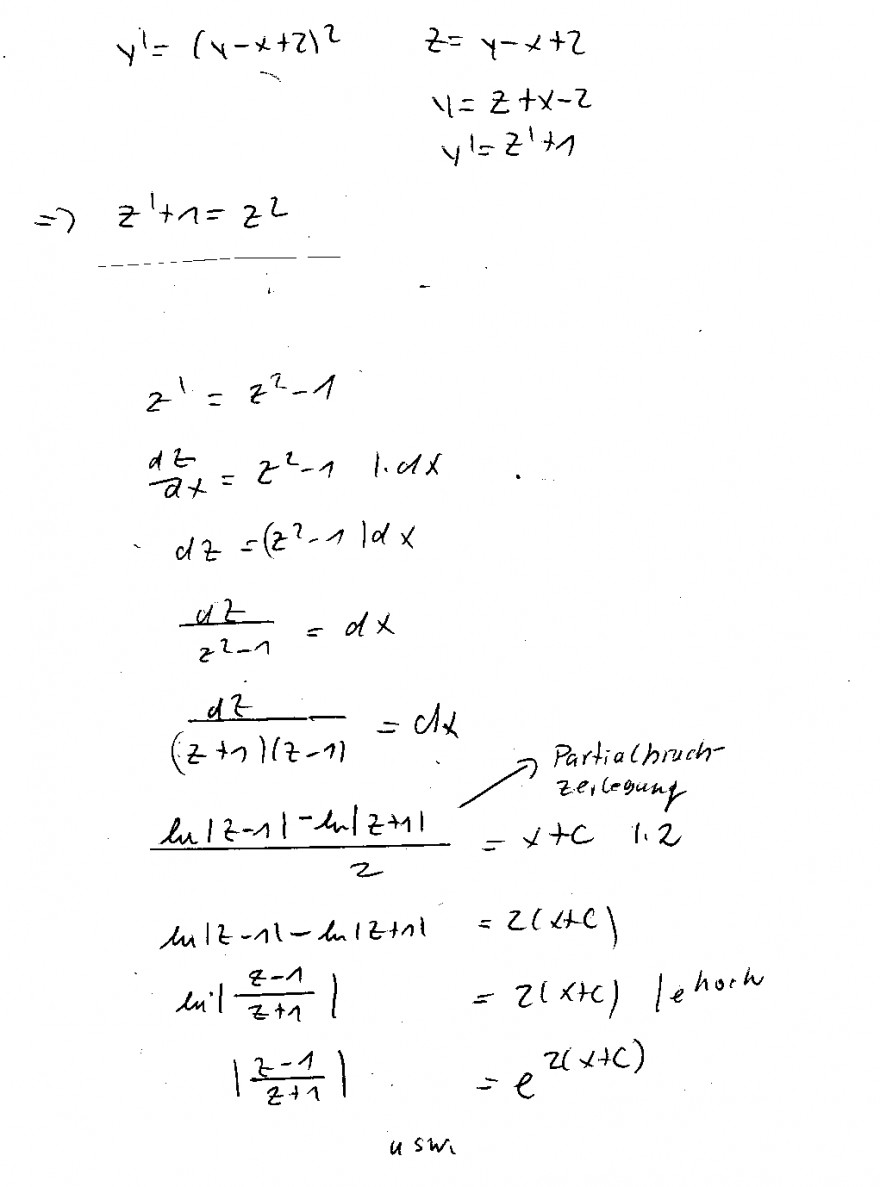 y' = (y-x+2)² z = y-x+2
y = z+x-2
y' = z'+1
=> z'+1 = z²
z' = z²-1
dz/dx = z²-1 |·dx
dz = (z²-1)dx
dz/(z²-1) = dx
dz/((z+1)(z-1)) = dx
Partialbruch-
zerlegung
(ln|z-1|-ln|z+1|)/2 = x+C |·2
ln|z-1|-ln|z+1| = 2(x+C)
ln|(z-1)/(z+1)| = 2(x+C) |e hoch
|(z-1)/(z+1)| = e^(2(x+C))
usw.